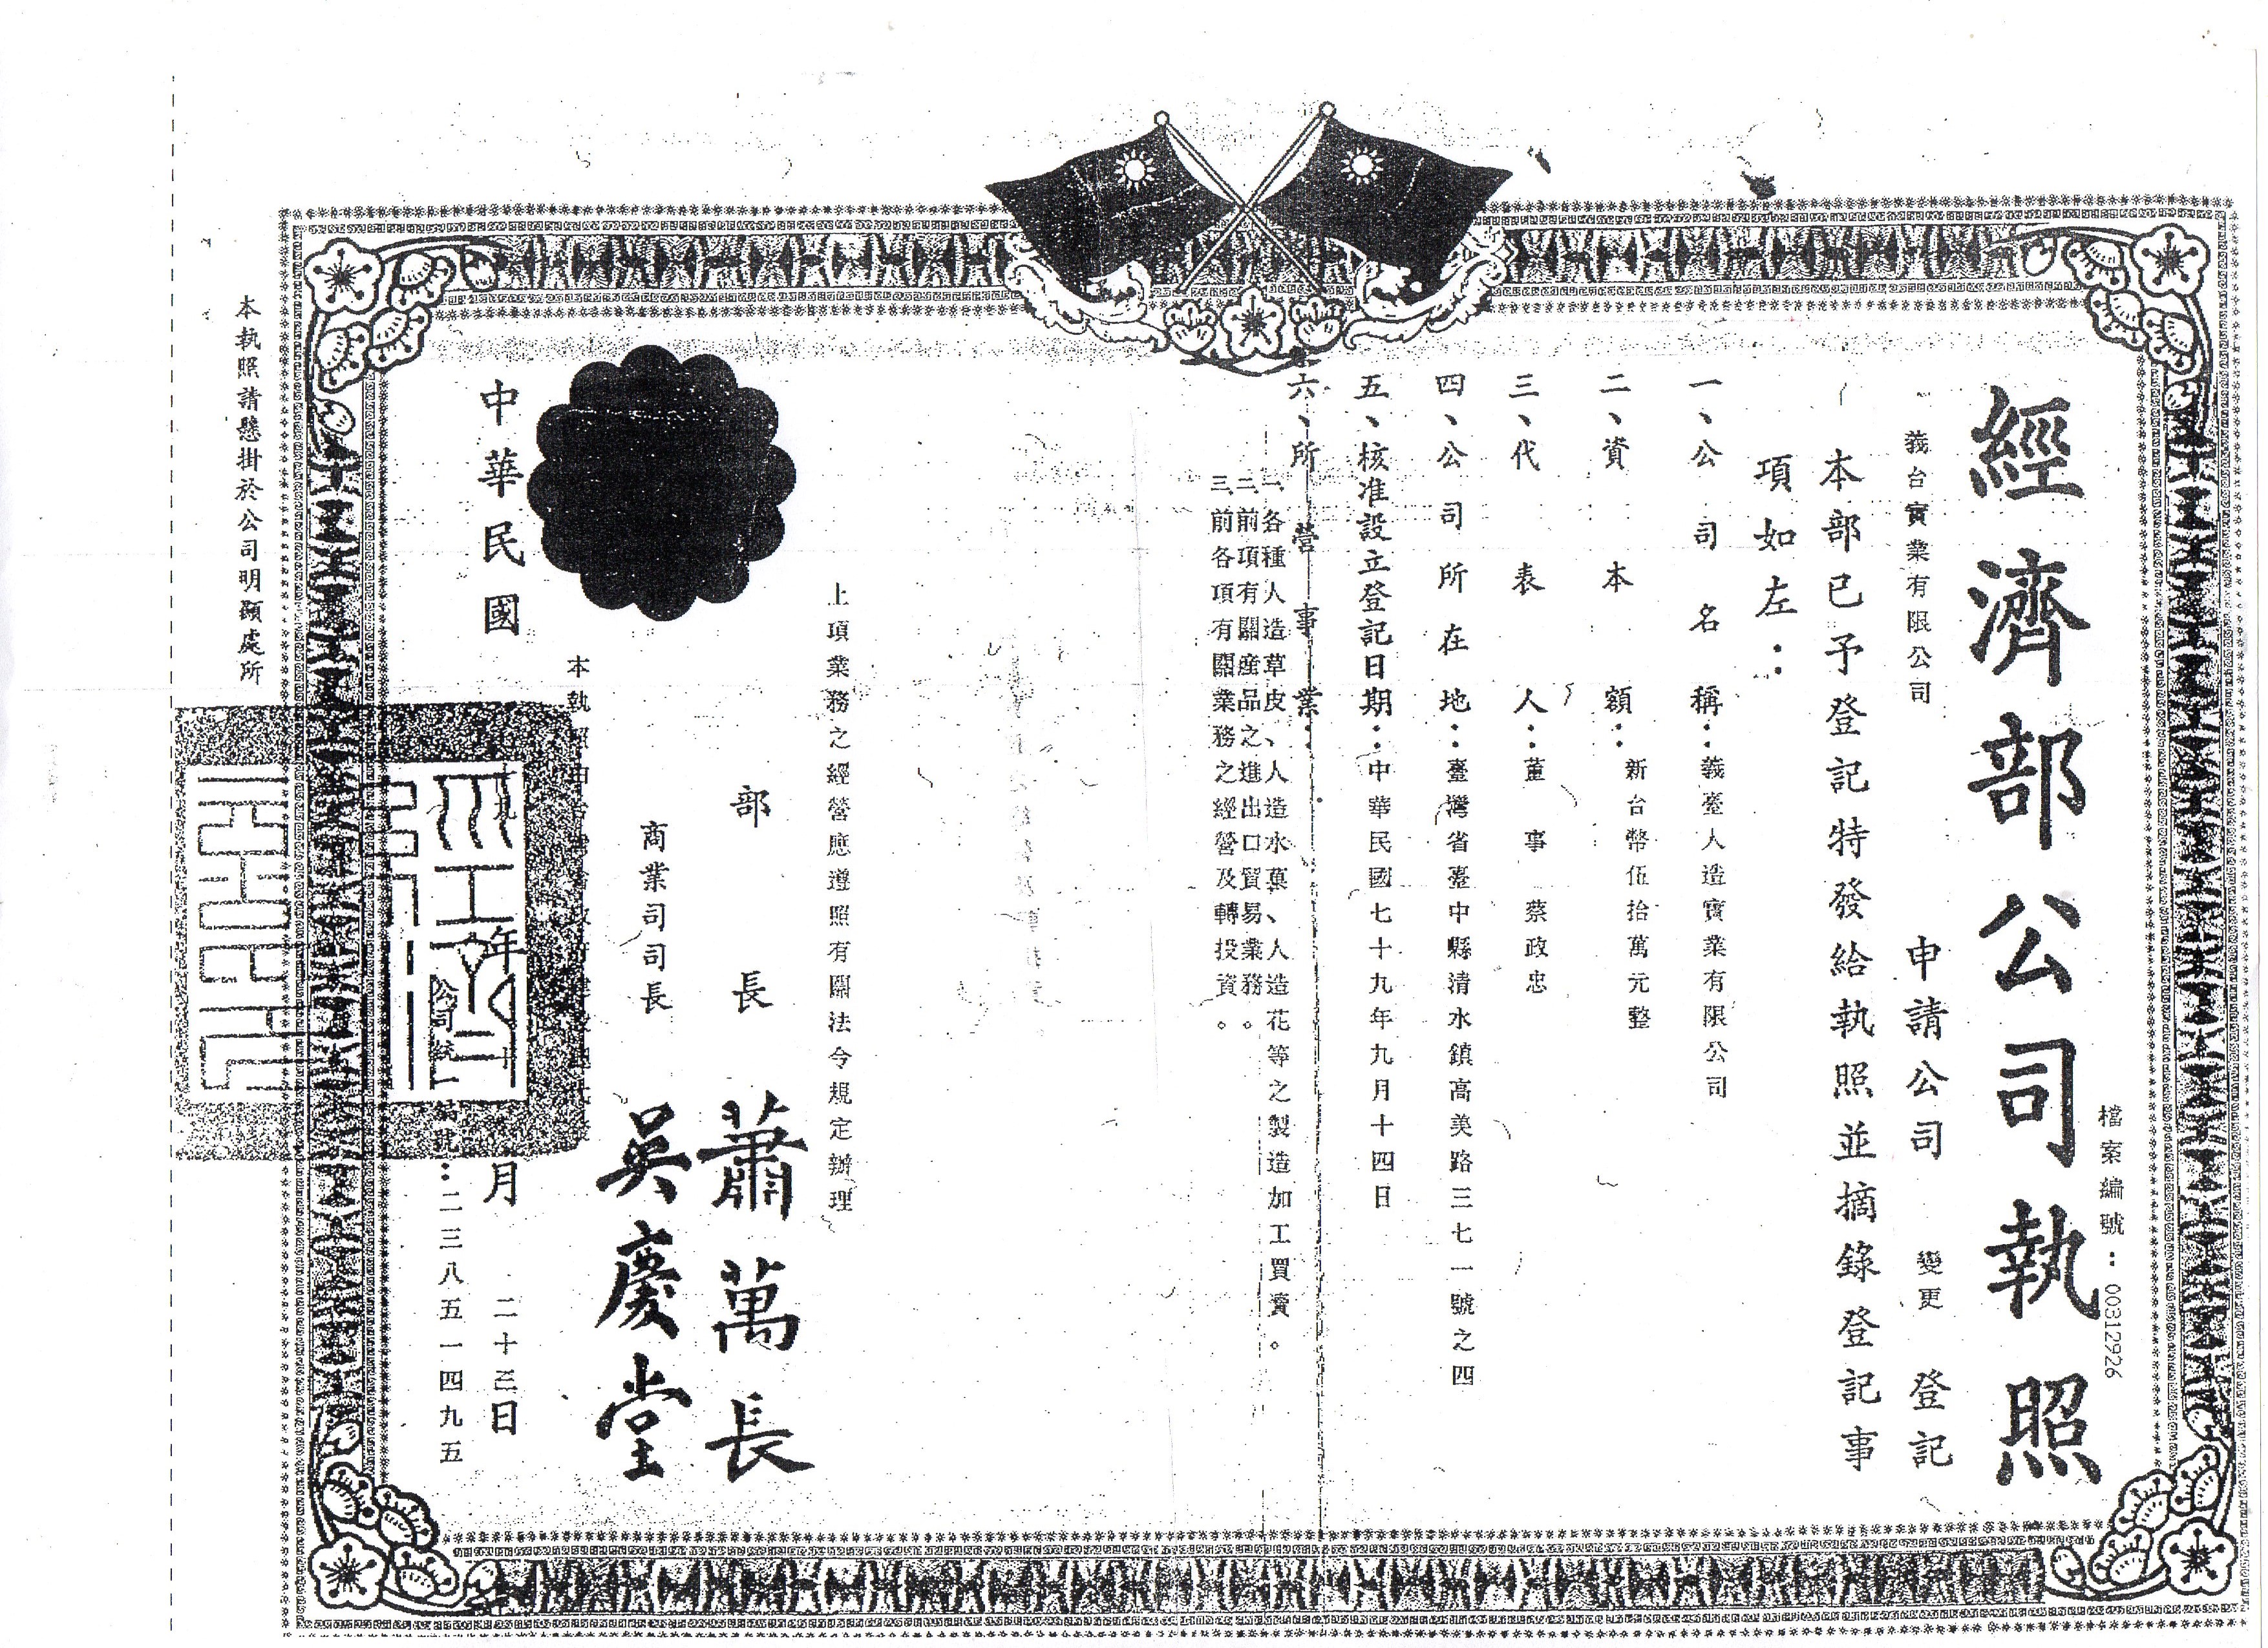 經濟部公司執照
檔案編號：00312926
義台實業有限公司 申請公司 變更 登記
本部已予登記特發給執照並摘錄登記事
項如左：
一、公司名稱：義臺人造實業有限公司
二、資本額：新台幣伍拾萬元整
三、代表人：董事 蔡政忠
四、公司所在地：臺灣省臺中縣清水鎮高美路三七一號之四
五、核准設立登記日期：中華民國七十九年九月十四日
六、所營事業：
一、各種人造草皮、人造水菓、人造花等之製造加工買賣。
二、前項有關產品之進出口貿易業務。
三、前各項有關業務之經營及轉投資。
上項業務之經營應遵照有關法令規定辦理
部長 蕭萬長
商業司司長 吳慶堂
本執照由
中華民國 十九年 月 二十三日
公司統一編號：二三八五一四九五
本執照請懸掛於公司明顯處所